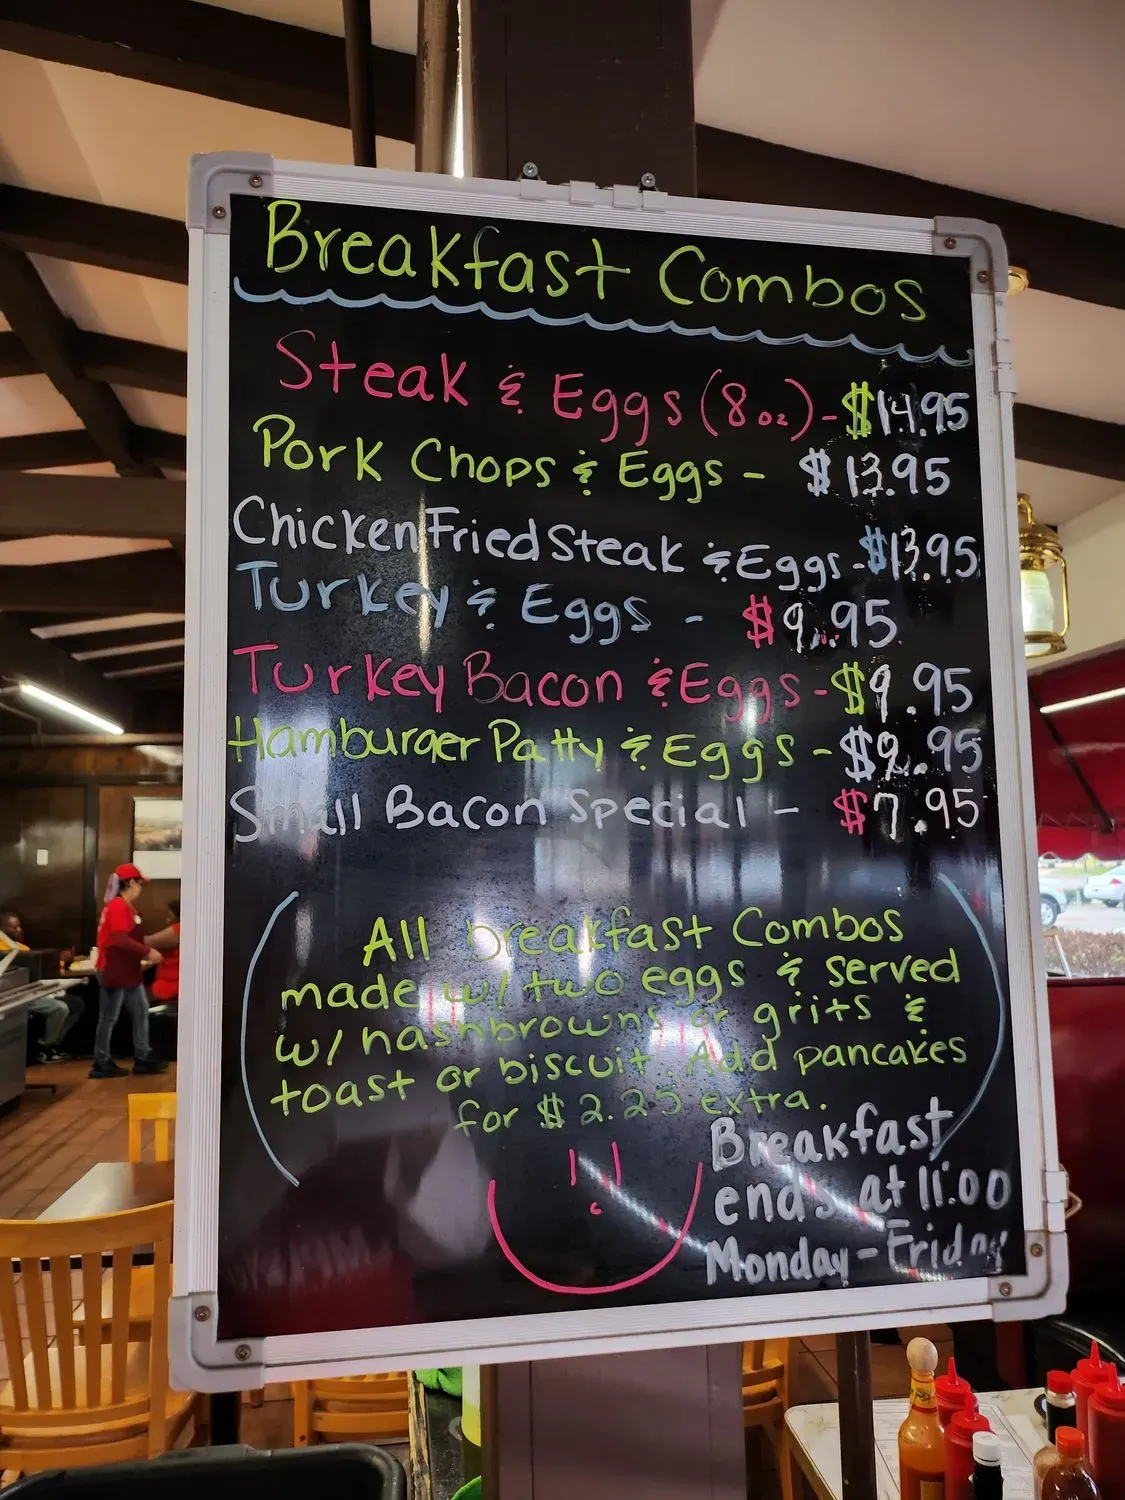 Breakfast Combos
Steak & Eggs (8oz) - $14.95
Pork Chops & Eggs - $13.95
Chicken Fried Steak & Eggs - $13.95
Turkey & Eggs - $9.95
Turkey Bacon & Eggs - $9.95
Hamburger Patty & Eggs - $9.95
Small Bacon Special - $7.95
All breakfast Combos
made w/ two eggs & served
w/ hashbrowns or grits &
toast or biscuit. Add pancakes
for $2.25 extra.
Breakfast
ends at 11:00
Monday - Friday